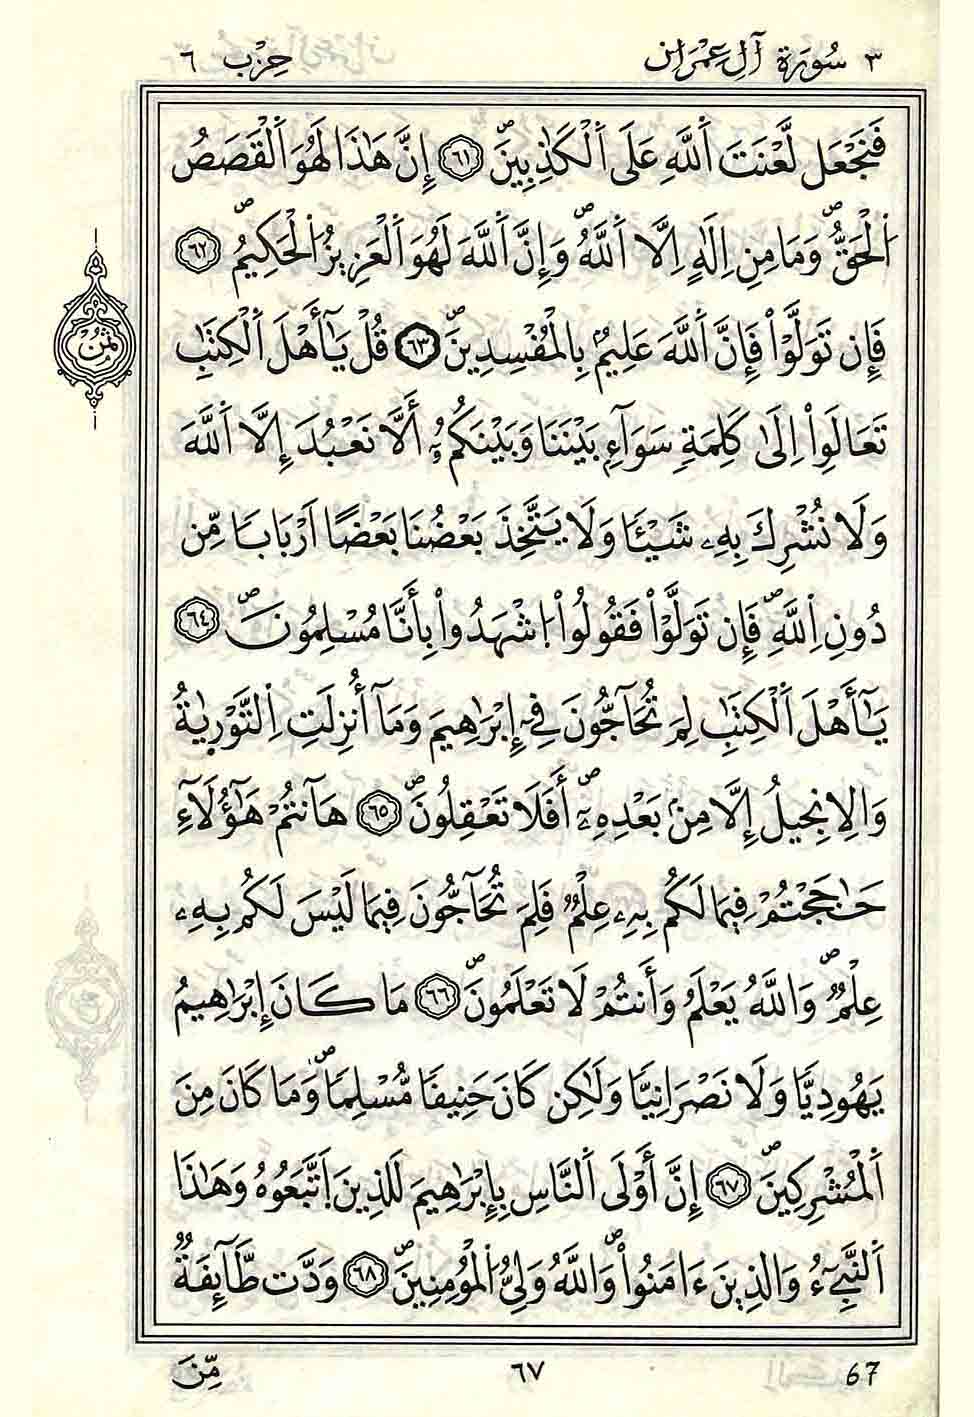 ٣ سُورَة آلِ عِمْرَان
حِزْب ٦
فَنَجْعَل لَّعْنَتَ اَللَّهِ عَلَى اَلْكَٰذِبِينَۖ ٦١ إِنَّ هَٰذَا لَهُوَ اَلْقَصَصُ
اُلْحَقُّۖ وَمَا مِنِ اِلَٰهٍ اِلَّا اَللَّهُۖ وَإِنَّ اَللَّهَ لَهُوَ اَلْعَزِيزُ اُلْحَكِيمُۖ ٦٢
فَإِن تَوَلَّوْاْ فَإِنَّ اَللَّهَ عَلِيمُۢ بِالْمُفْسِدِينَۖ ٦٣ قُلْ يَٰٓأَهْلَ اَلْكِتَٰبِ
ثُمُن
تَعَالَوِاْ اِلَىٰ كَلِمَةٖ سَوَآءِۢ بَيْنَنَا وَبَيْنَكُمُۥٓ أَلَّا نَعْبُدَ إِلَّا اَللَّهَ
وَلَا نُشْرِكَ بِهِۦ شَيْـٔٗا وَلَا يَتَّخِذَ بَعْضُنَا بَعْضًا اَرْبَابٗا مِّن
دُونِ اِللَّهِۖ فَإِن تَوَلَّوْاْ فَقُولُواْ اُشْهَدُواْ بِأَنَّا مُسْلِمُونَۖ ٦٤
يَٰٓأَهْلَ اَلْكِتَٰبِ لِمَ تُحَآجُّونَ فِےٓ إِبْرَٰهِيمَ وَمَآ أُنزِلَتِ اِلتَّوْرَيٰةُ
وَالِانجِيلُ إِلَّا مِنۢ بَعْدِهِۦٓۖ أَفَلَا تَعْقِلُونَۖ ٦٥ هَآنتُمْ هَٰٓؤُلَآءِ
حَٰجَجْتُمْ فِيمَا لَكُم بِهِۦ عِلْمٞ فَلِمَ تُحَآجُّونَ فِيمَا لَيْسَ لَكُم بِهِۦ
عِلْمٞۖ وَاللَّهُ يَعْلَمُ وَأَنتُمْ لَا تَعْلَمُونَۖ ٦٦ مَا كَانَ إِبْرَٰهِيمُ
يَهُودِيّٗا وَلَا نَصْرَانِيّٗا وَلَٰكِن كَانَ حَنِيفٗا مُّسْلِمٗاۖ وَمَا كَانَ مِنَ
اَلْمُشْرِكِينَۖ ٦٧ إِنَّ أَوْلَى اَلنَّاسِ بِإِبْرَٰهِيمَ لَلذِينَ اَتَّبَعُوهُ وَهَٰذَا
اَلنَّبِےٓءُ وَالذِينَ ءَامَنُواْۖ وَاللَّهُ وَلِيُّ اُلْمُومِنِينَۖ ٦٨ وَدَّت طَّآئِفَةٞ
مِّنَ
٦٧
67